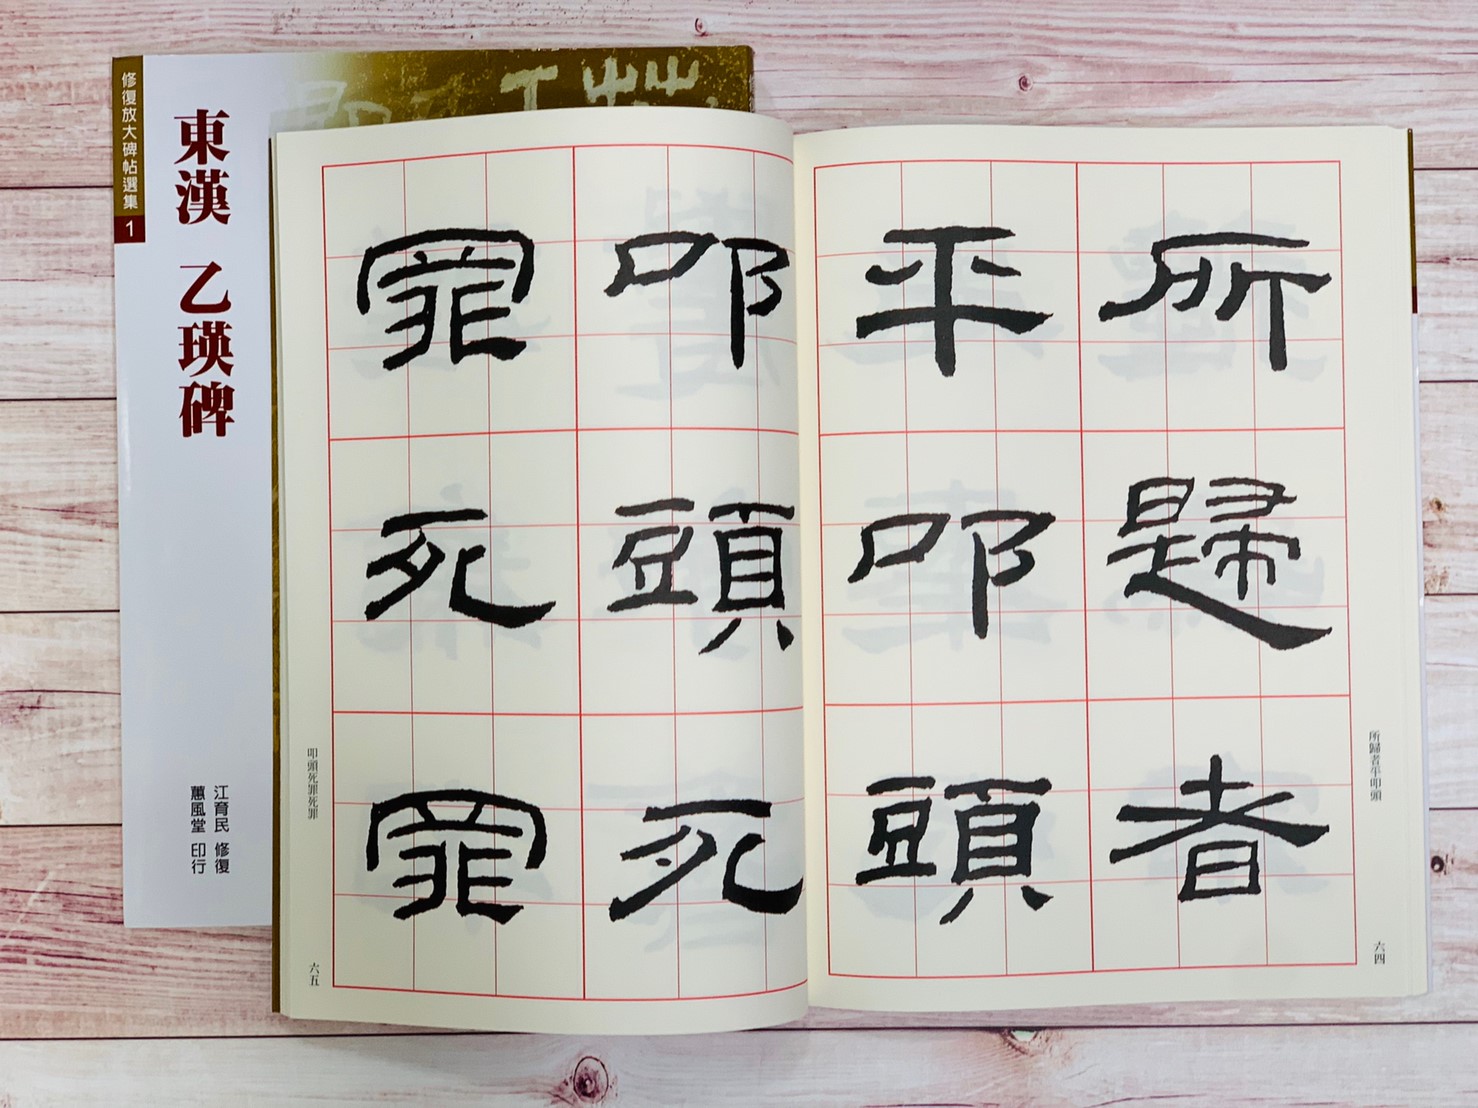 修復放大碑帖選集
1
東漢 乙瑛碑
江育民 修復
蕙風堂 印行
所歸者
平叩頭
所歸者平叩頭
六四
叩頭死
罪死罪
叩頭死罪死罪
六五